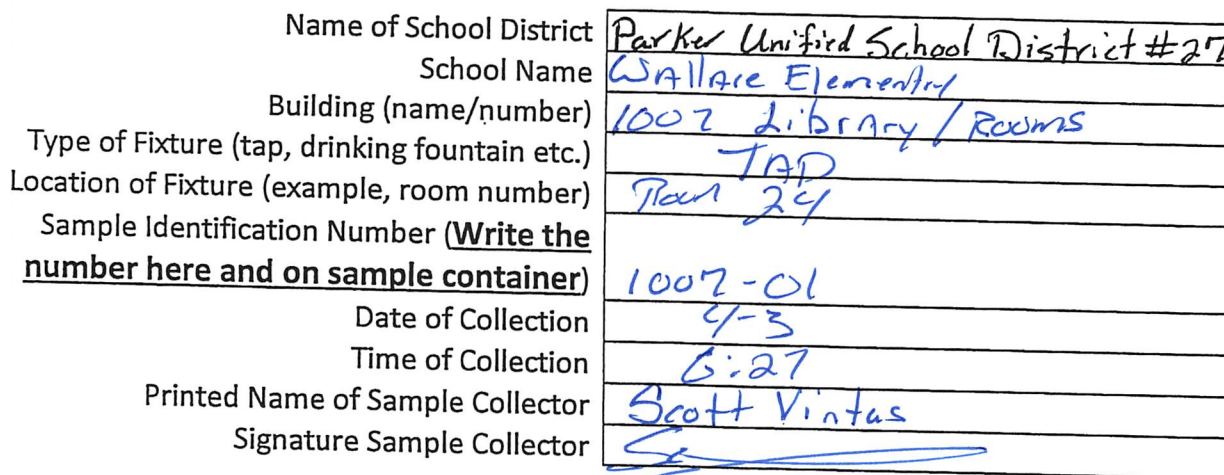 Name of School District Parker Unified School District #27
School Name Wallace Elementry
Building (name/number) 1007 Library / Rooms
Type of Fixture (tap, drinking fountain etc.) TAP
Location of Fixture (example, room number) Room 24
Sample Identification Number (Write the
number here and on sample container) 1007-01
Date of Collection 4-3
Time of Collection 6:27
Printed Name of Sample Collector Scott Vintas
Signature Sample Collector